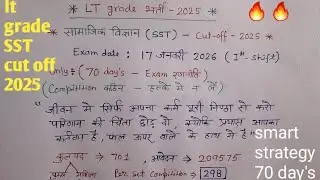 lt
grade
SST
cut off
2025
* LT grade भर्ती - 2025 *
* सामाजिक विज्ञान (SST) - Cut-off - 2025 *
Exam date : 17 जनवरी 2026 (Iˢᵗ - Shift)
Only : (70 day's - Exam रणनीति)
(Compitition कठिन - हल्के में न लें)
"जीवन में सिर्फ अपना कर्म पूरी निष्ठा से करो
परिणाम की चिंता छोड़ दो, क्योंकि प्रयास आपका
कर्तव्य है, फल ऊपर वाले के हाथ में है।"
कुल पद → 701, आवेदन → 209575
Per Seat Compitition → 298
smart
strategy
70 day's